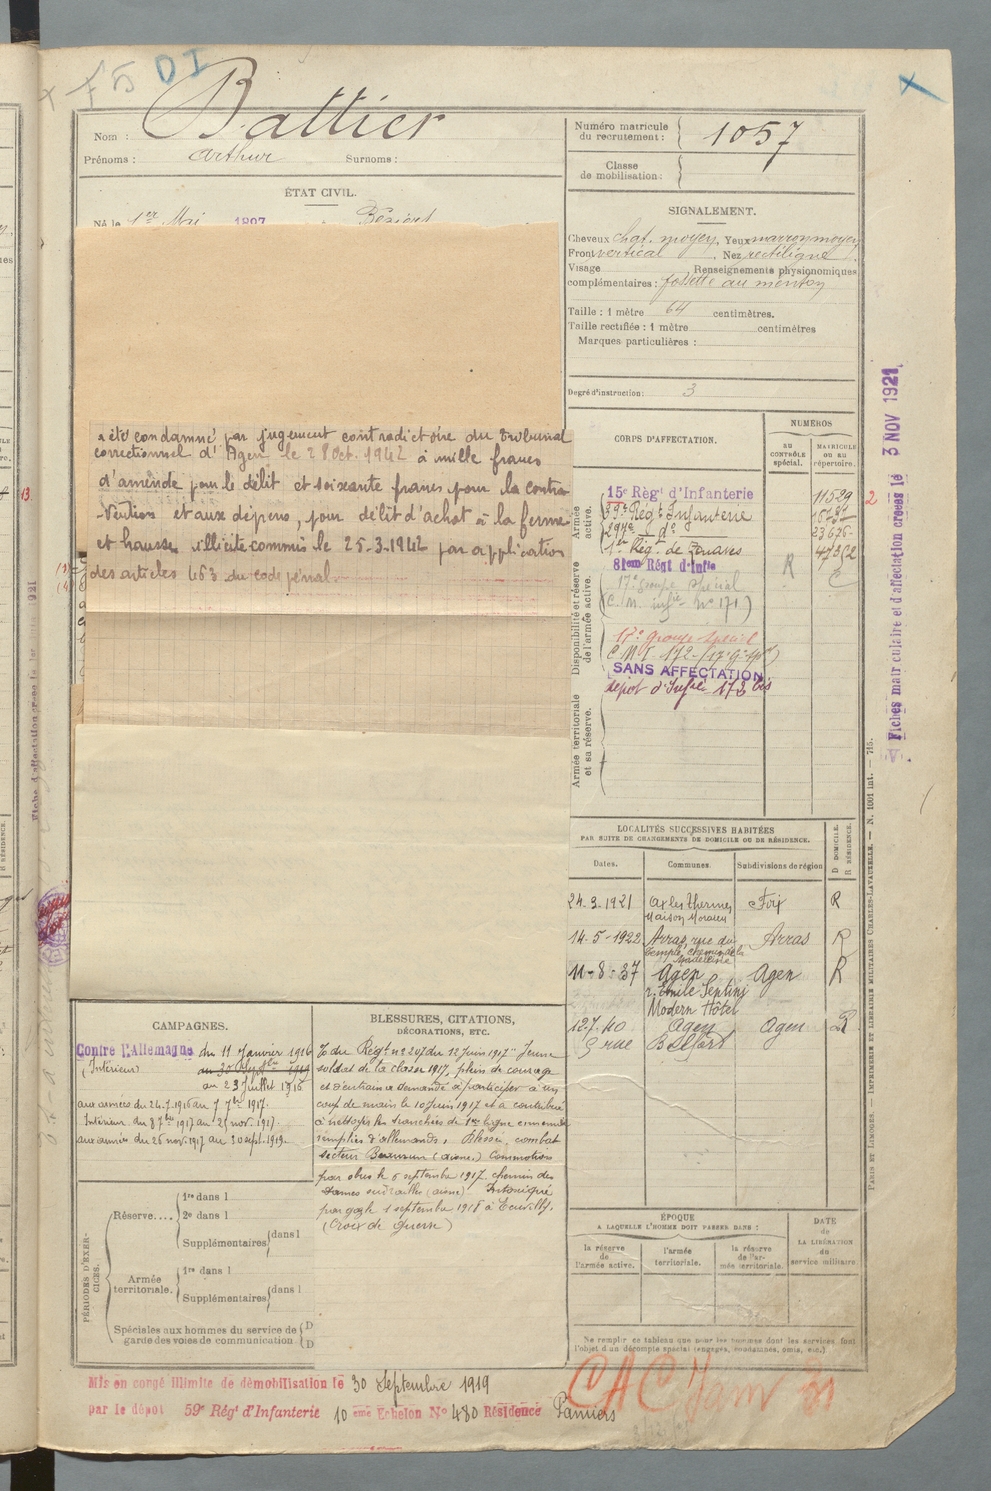 F 5 D I
Nom : Battier
Prénoms : Arthur Surnoms :
ÉTAT CIVIL.
Né le 1er Mai 1897 à Béziers
a été condamné par jugement contradictoire du Tribunal
correctionnel d'Agen le 28 Oct. 1942 à mille francs
d'amende pour le délit et soixante francs pour la contra-
vention et aux dépens, pour délit d'achat à la ferme
et hausse illicite commis le 25-3-1942 par application
des articles 463 du code pénal
Numéro matricule
du recrutement : 1057
Classe
de mobilisation :
SIGNALEMENT.
Cheveux chat. moyen, Yeux marron moyen
Front vertical , Nez rectiligne
Visage Renseignements physionomiques
complémentaires : fossette au menton
Taille : 1 mètre 64 centimètres.
Taille rectifiée : 1 mètre centimètres
Marques particulières :
Degré d'instruction : 3
CORPS D'AFFECTATION.
NUMÉROS
AU
CONTRÔLE
spécial.
MATRICULE
OU AU
répertoire.
Armée
active.
Disponibilité et réserve
de l'armée active.
Armée territoriale
et sa réserve.
15e Règt d'Infanterie 11529
59e Rég. Infanterie
297e d° 23676
1er Rég. de Zouaves
81em Régt d'Infie R
17e groupe spécial
C. M. infie n° 171)
17e groupe spécial
C M I 172
SANS AFFECTATION
dépôt d'Infie 173 bis
LOCALITÉS SUCCESSIVES HABITÉES
PAR SUITE DE CHANGEMENTS DE DOMICILE OU DE RÉSIDENCE.
Dates. Communes. Subdivisions de région
D DOMICILE.
R RÉSIDENCE.
24-3-1921 Ax les Thermes Foix R
Maison Moraux
14-5-1922 Arras, rue du Arras R
Temple, chemin de la
Madeleine
11-8-37 Agen Agen R
r. Emile Sentini
Modern Hôtel
12.7.40 Agen Agen R
9 rue Belfort
CAMPAGNES.
Contre l'Allemagne du 11 Janvier 1916
(Intérieur) au 30 Septbre 1919
au 23 Juillet 1916
aux armées du 24-7-1916 au 7 7bre 1917.
Intérieur du 8 7bre 1917 au 25 nov. 1917.
aux armées du 26 nov. 1917 au 30 sept. 1919.
BLESSURES, CITATIONS,
DÉCORATIONS, ETC.
O du Régt n° 207 du 12 Juin 1917 " Jeune
soldat de la classe 1917, plein de courage
et d'entrain a demandé à participer à un
coup de main le 10 Juin 1917 et a contribué
à nettoyer les tranchées de 1ère ligne ennemie
remplies d'allemands, Blessé, combat
secteur (Aisne) Commotion
par obus le 6 septembre 1917 chemin des
Dames (Aisne) Intoxiqué
par gaz le 1 septembre 1918 à
(Croix de Guerre)
PÉRIODES D'EXER-
CICES.
Réserve....
1re dans l
2e dans l
Supplémentaires dans l
Armée
territoriale.
1re dans l
Supplémentaires dans l
Spéciales aux hommes du service de D
garde des voies de communication D
ÉPOQUE
A LAQUELLE L'HOMME DOIT PASSER DANS :
la réserve
de
l'armée active.
l'armée
territoriale.
la réserve
de l'ar-
mée territoriale.
DATE
de
LA LIBÉRATION
du
service militaire
Ne remplir ce tableau que pour les hommes dont les services font
l'objet d'un décompte spécial (engagés, condamnés, omis, etc.)
Mis en congé illimité de démobilisation le 30 Septembre 1919
par le dépôt 59e Régt d'Infanterie 10 ème Echelon N° 480 Résidence Pamiers
CAC Janv 31
Fiches matriculaire et d'affectation créées le 3 NOV 1921
PARIS ET LIMOGES. — IMPRIMERIE ET LIBRAIRIE MILITAIRES CHARLES-LAVAUZELLE. — N. 1001 int. — 715.